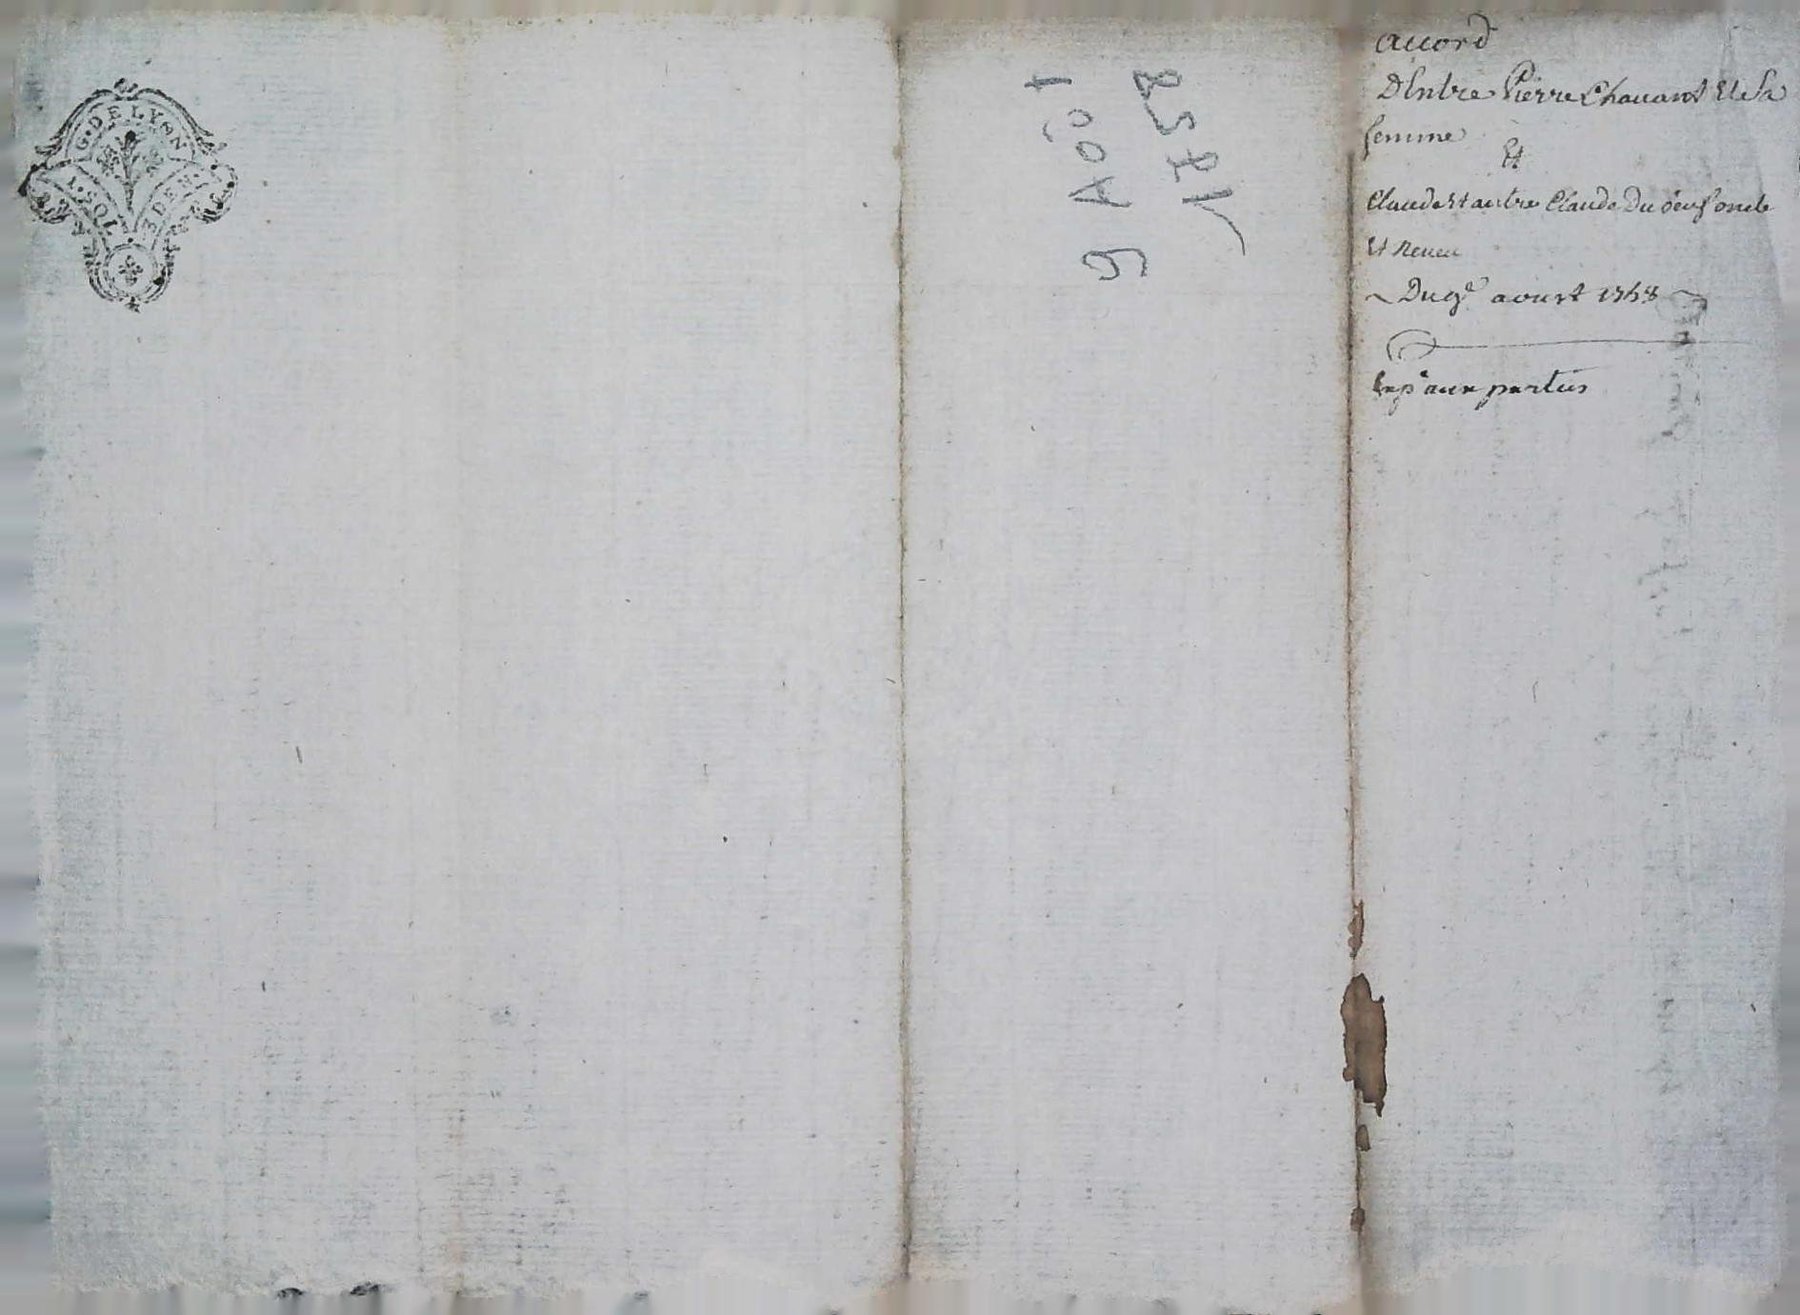 G. DE LYON
1. SOL DEN.
9 Aoôt
1758
accord
D'Entre Pierre Chavant Et Sa
femme
Et
Claude Et autre Claude oncle
Et Neveu
Du 9e aoust 1758
Exp.e aux parties